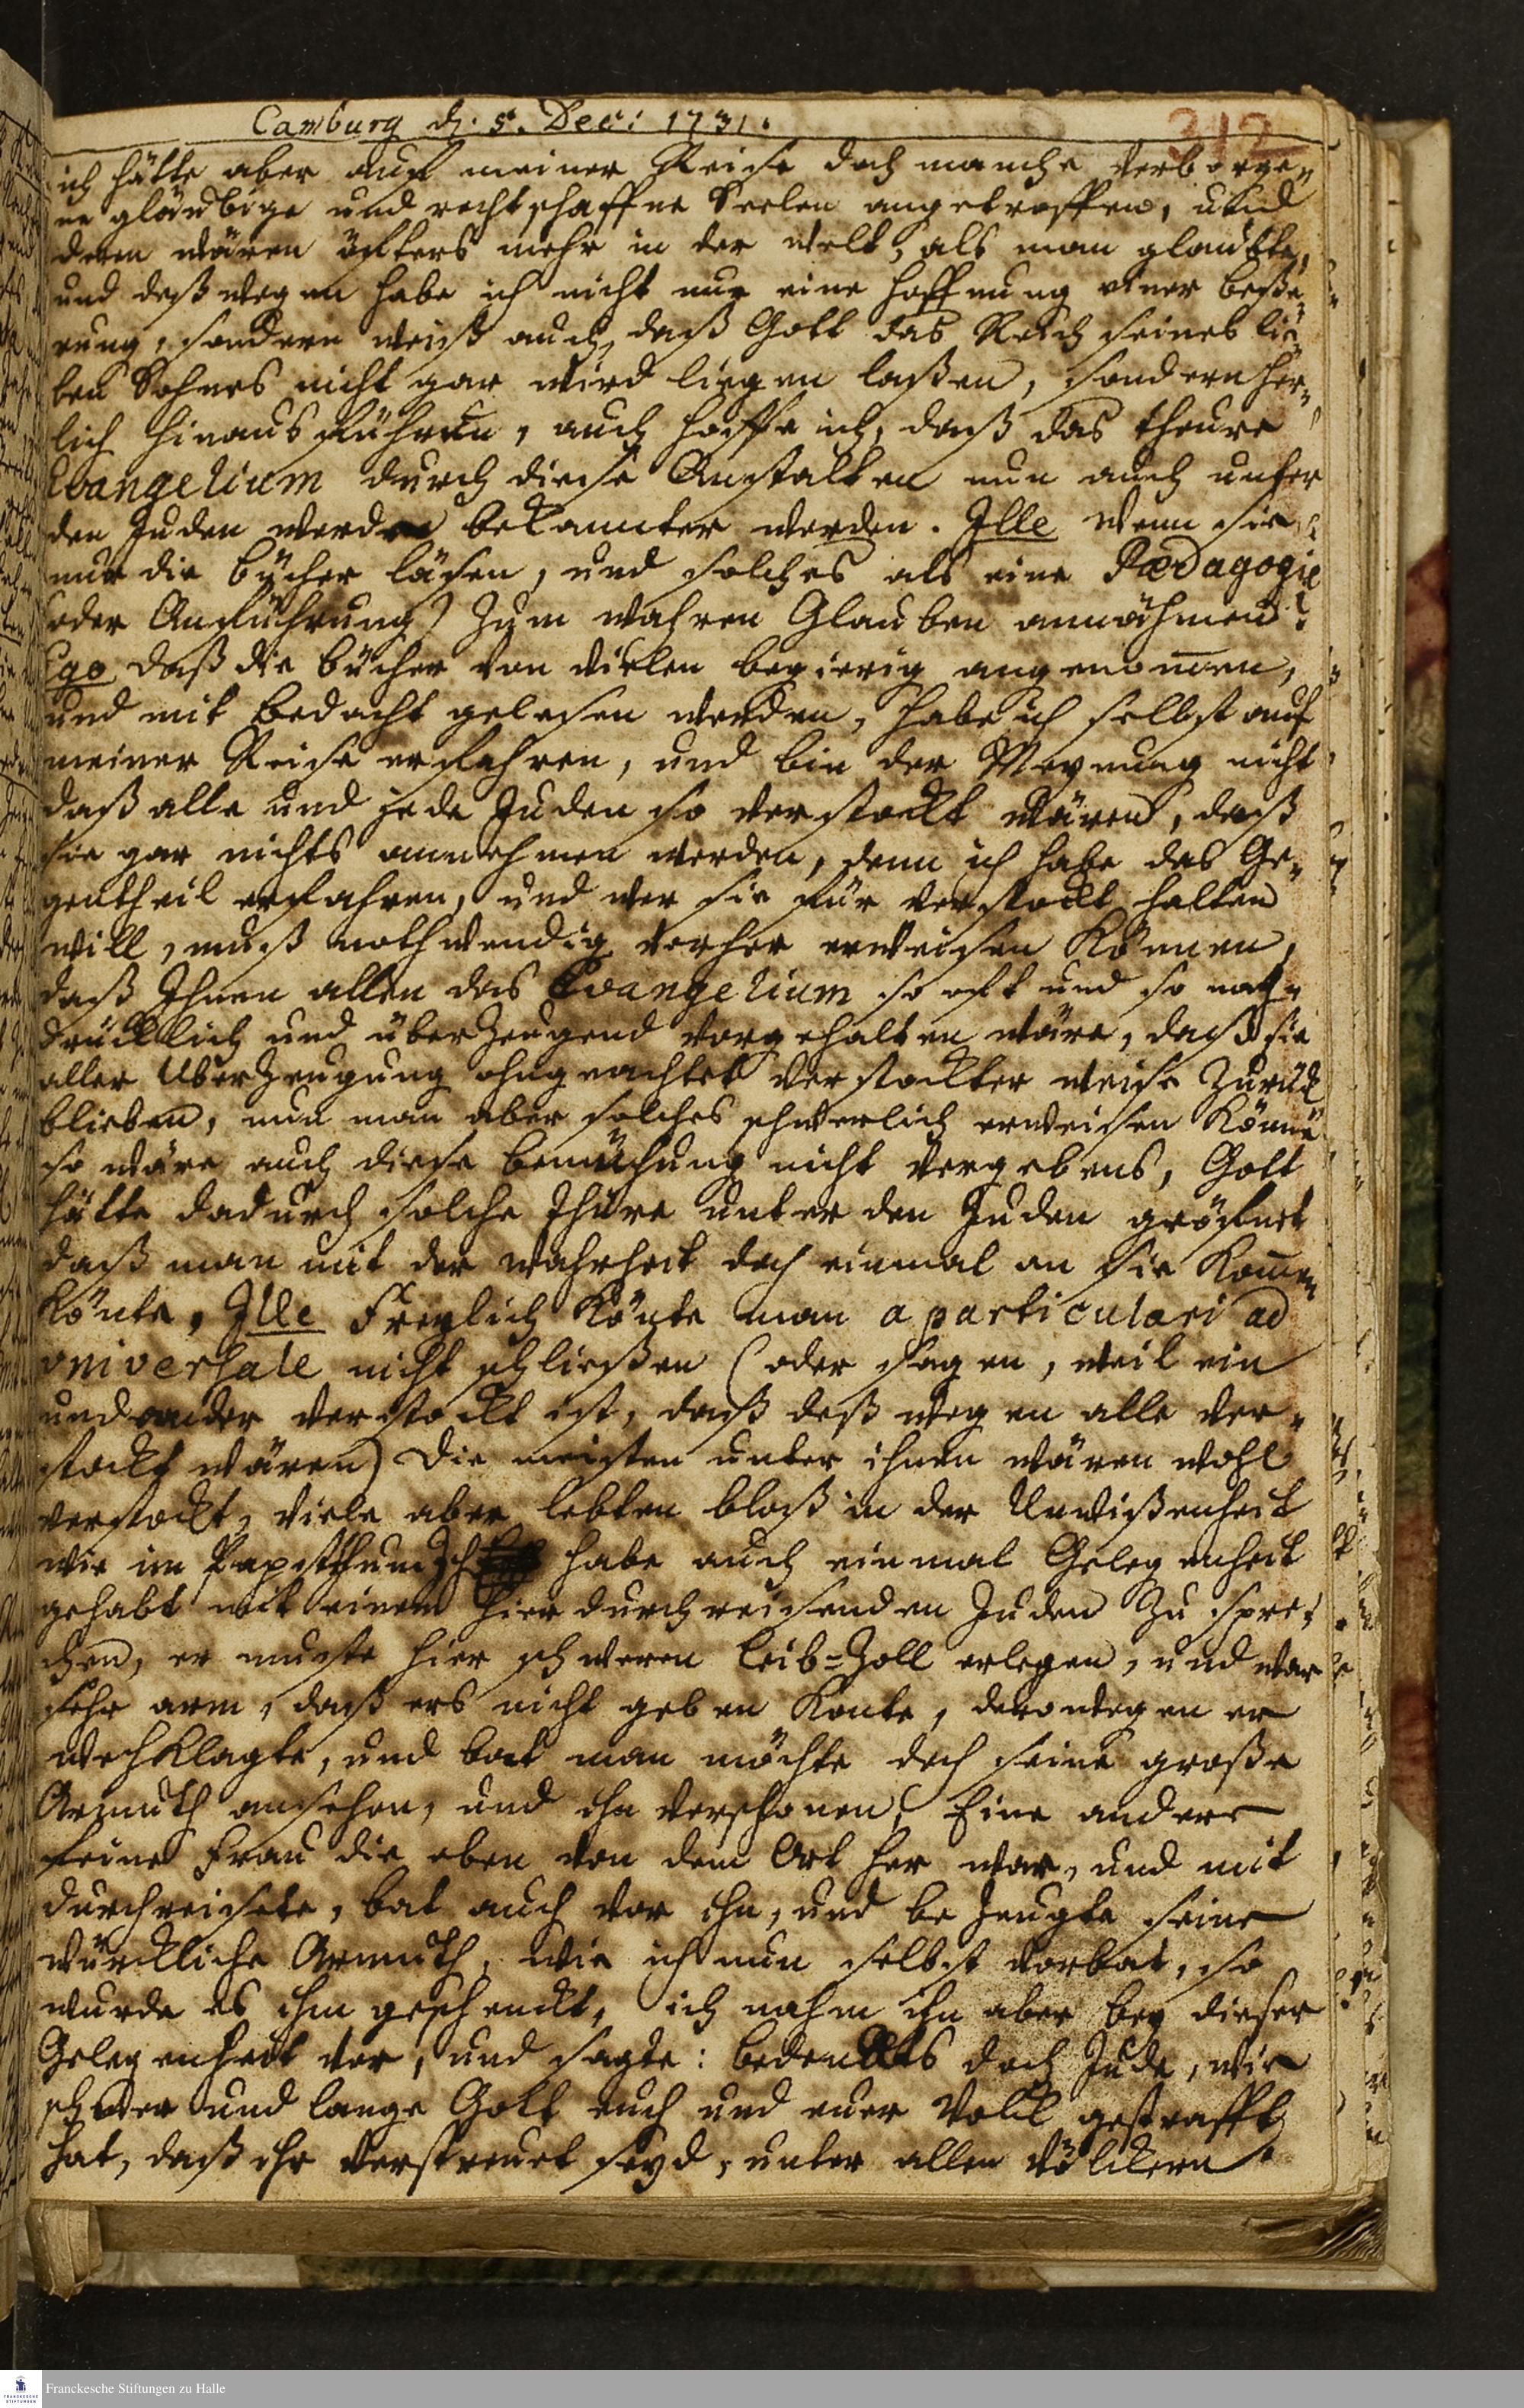 Camburg d. 5. Dec: 1731.
312
ich hätte aber auf meiner Reise doch manche verborge„
ne gläubige und rechtschaffne Seelen angetroffen, und
deren wären öfters mehr in der Welt, als man glaubte,
und deßwegen habe ich nicht nur eine Hoffnung einer beße„
rung, sondern weiß auch, daß Gott das Reich seines lie„
ben Sohnes nicht gar wird liegen laßen, sondern her„
lich hinausführen, auch hoffe ich, daß das theure
Evangelium durch diese Anstalten nun auch unter
den Juden werde bekannter werden. Ille wenn sie
nur die bücher läsen, und solches als eine Pædagogie
(oder Anführung) zum wahren Glauben annähmen!
Ego daß die bücher von vielen begierig angenom̅en,
und mit bedacht gelesen werden, habe ich selbst auf
meiner Reise erfahren, und bin der Meynung nicht
daß alle und jede Juden so verstockt wären, daß
sie gar nichts annehmen werden, denn ich habe das Ge„
gentheil erfahren, und wer sie für verstockt halten
will, muß nothwendig vorher erweisen können,
daß Ihnen allen das Evangelium so oft und so nach„
drücklich und überzeugend vorgehalten wäre, daß sie
aller Uberzeugung ohngeachtet verstockter weise zurück
blieben, nun man aber solches schwerlich erweisen könne
so wäre auch diese bemühung nicht vergebens, Gott
hätte dadurch solche thüre unter den Juden geöfnet
daß man mit der wahrheit doch einmal an sie kom̅en
könte, Ille Freylich könte man a particulari ad
vniversale nicht schließen (oder sagen, weil ein
und ander verstockt ist, daß deß wegen alle ver„
stockt wären) die meisten unter ihnen wären wohl
verstockt, viele aber lebten bloß in der Unwißenheit
wie im Papstthum Ich habe auch einmal Gelegenheit
gehabt mit einem hier durchreisenden Juden zu spre„
chen, er muste hier schweren Leib=Zoll erlegen, und war
sehr arm, daß ers nicht geben konte, derowegen er
wehklagte, und bat man möchte doch seine große
Armuth ansehen, und ihn verschonen, Eine andere
feine Frau die eben von dem Ort her war, und mit
durchreisete, bat auch vor ihn, und bezeugte seine
würckliche Armuth, wie ich nun selbst vorbat, so
wurde es ihm geschenckt, ich nahm ihn aber bey dieser
Gelegenheit vor, und sagte: bedenckts doch Jude, wie
schwer und lange Gott euch und euer Volck gestrafft
hat, daß ihr verstreuet seyd, unter allen Völckern.
Franckesche Stiftungen zu Halle